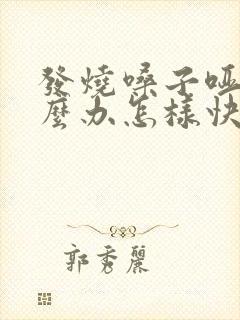 發燒嗓子啞
麼办怎樣快
郭秀麗